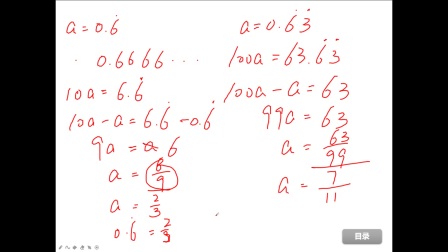 a = 0.6̇
· 0.6666 ···
10a = 6.6̇
10a - a = 6.6̇ - 0.6̇
9a = 6
a = 6/9
a = 2/3
0.6̇ = 2/3
a = 0.6̇3̇
100a = 63.6̇3̇
100a - a = 63
99a = 63
a = 63/99
a = 7/11
目录